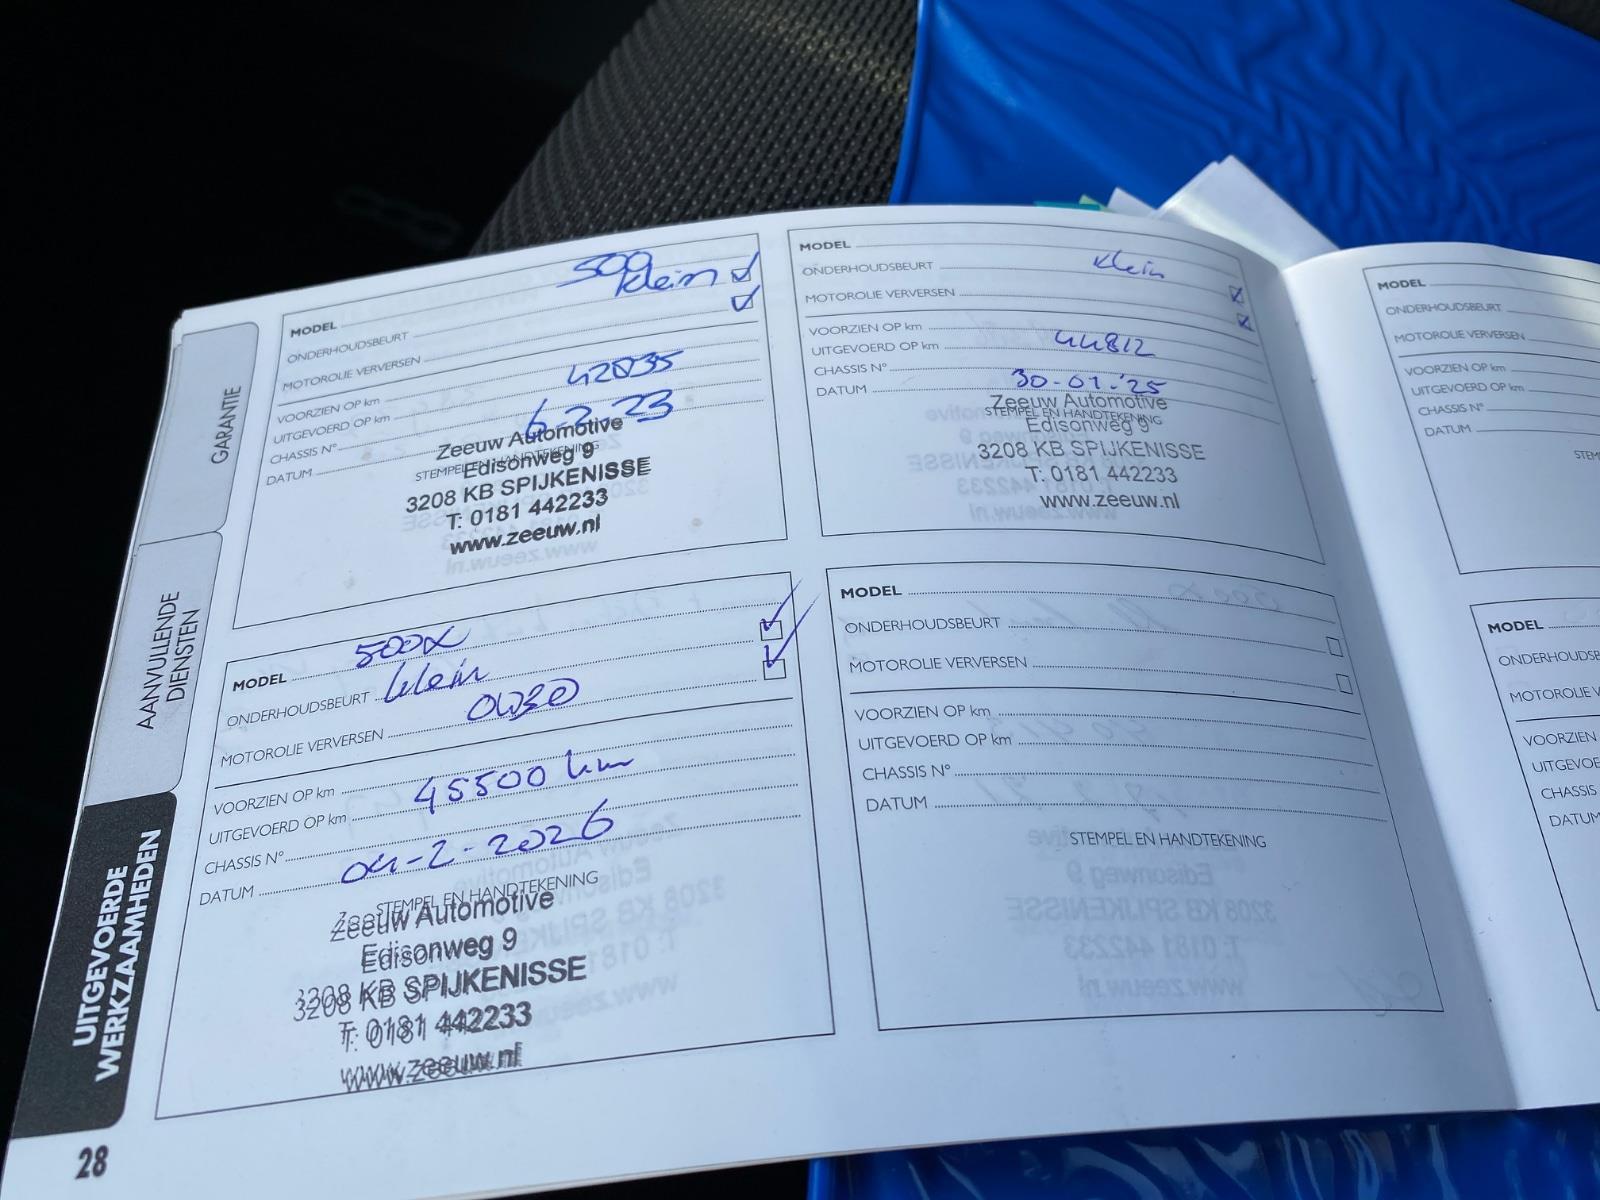 GARANTIE
AANVULLENDE
DIENSTEN
UITGEVOERDE
WERKZAAMHEDEN
MODEL 500
ONDERHOUDSBEURT klein
MOTOROLIE VERVERSEN
VOORZIEN OP km
UITGEVOERD OP km 42035
CHASSIS N°
DATUM 6-2-23
STEMPEL EN HANDTEKENING
Zeeuw Automotive
Edisonweg 9
3208 KB SPIJKENISSE
T: 0181 442233
www.zeeuw.nl
MODEL
ONDERHOUDSBEURT klein
MOTOROLIE VERVERSEN
VOORZIEN OP km
UITGEVOERD OP km 44812
CHASSIS N°
DATUM 30-01-'25
Zeeuw Automotive
STEMPEL EN HANDTEKENING
Edisonweg 9
3208 KB SPIJKENISSE
T: 0181 442233
www.zeeuw.nl
MODEL 500X
ONDERHOUDSBEURT klein
MOTOROLIE VERVERSEN 0W30
VOORZIEN OP km
UITGEVOERD OP km 45500 km
CHASSIS N°
DATUM 04-2-2026
STEMPEL EN HANDTEKENING
Zeeuw Automotive
Edisonweg 9
3208 KB SPIJKENISSE
T: 0181 442233
www.zeeuw.nl
MODEL
ONDERHOUDSBEURT
MOTOROLIE VERVERSEN
VOORZIEN OP km
UITGEVOERD OP km
CHASSIS N°
DATUM
STEMPEL EN HANDTEKENING
28
MODEL
ONDERHOUDSBEURT
MOTOROLIE VERVERSEN
VOORZIEN OP km
UITGEVOERD OP km
CHASSIS N°
DATUM
MODEL
MOTOROLIE
VOORZIEN
CHASSIS